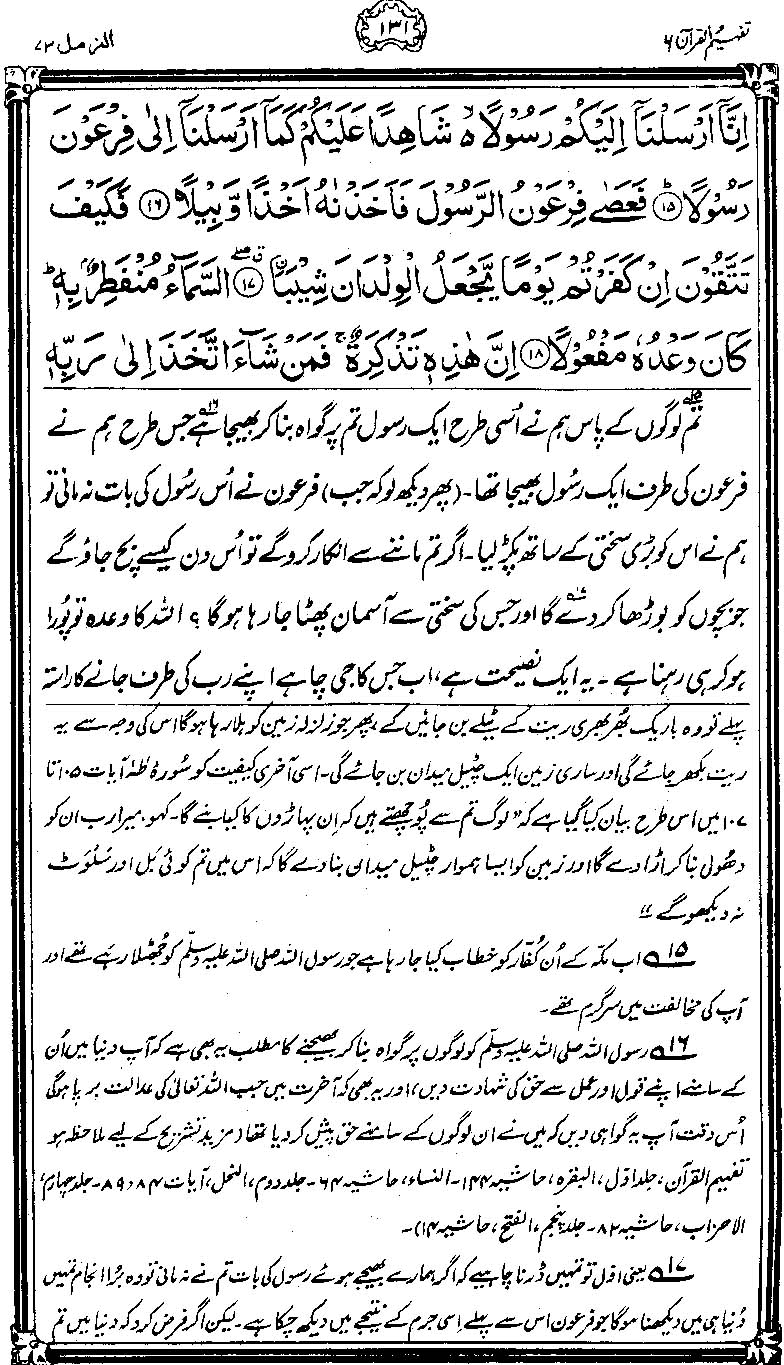 تفہیم القرآن ۶
۱۳۱
المزمل ۷۳
اِنَّاۤ اَرْسَلْنَاۤ اِلَيْكُمْ رَسُوْلًا ۙ۬ شَاهِدًا عَلَيْكُمْ كَمَاۤ اَرْسَلْنَاۤ اِلٰى فِرْعَوْنَ
رَسُوْلًا ؕ۝۱۵ فَعَصٰى فِرْعَوْنُ الرَّسُوْلَ فَاَخَذْنٰهُ اَخْذًا وَّبِيْلًا ۝۱۶ فَكَيْفَ
تَتَّقُوْنَ اِنْ كَفَرْتُمْ يَوْمًا يَّجْعَلُ الْوِلْدَانَ شِيْبَا ۝۱۷ السَّمَآءُ مُنْفَطِرٌۢ بِهٖ ؕ
كَانَ وَعْدُهٗ مَفْعُوْلًا ۝۱۸ اِنَّ هٰذِهٖ تَذْكِرَةٌ ۚ فَمَنْ شَآءَ اتَّخَذَ اِلٰى رَبِّهٖ
تم ۱۵ لوگوں کے پاس ہم نے اُسی طرح ایک رسول تم پر گواہ بنا کر بھیجا ۱۶ ہے جس طرح ہم نے
فرعون کی طرف ایک رسُول بھیجا تھا۔ (پھر دیکھ لو کہ جب) فرعون نے اُس رسُول کی بات نہ مانی تو
ہم نے اس کو بڑی سختی کے ساتھ پکڑ لیا۔ اگر تم ماننے سے انکار کرو گے تو اُس دن کیسے بچ جاؤ گے
جو بچوں کو بوڑھا کر دے گا اور جس کی سختی سے آسمان پھٹا جا رہا ہوگا؟ اللہ کا وعدہ تو پُورا
ہو کر ہی رہنا ہے۔ یہ ایک نصیحت ہے، اب جس کا جی چاہے اپنے رب کی طرف جانے کا راستہ
پہلے تو وہ باریک بھُربھری ریت کے ٹیلے بن جائیں گے، پھر جو زلزلہ زمین کو ہلا رہا ہوگا اس کی وجہ سے یہ
ریت بکھر جائے گی اور ساری زمین ایک چٹیل میدان بن جائے گی۔ اسی آخری کیفیت کو سُورۂ طٰہٰ آیات ۱۰۵ تا
۱۰۷ میں اس طرح بیان کیا گیا ہے کہ "لوگ تم سے پُوچھتے ہیں کہ اِن پہاڑوں کا کیا بنے گا۔ کہو میرا رب ان کو
دھُول بنا کر اڑا دے گا اور زمین کو ایسا ہموار چٹیل میدان بنا دے گا کہ اس میں تم کوئی بَل اور سَلْوَٹ
نہ دیکھو گے"
۱۵ اب مکّہ کے اُن کُفّار کو خطاب کیا جا رہا ہے جو رسول اللہ صلی اللہ علیہ وسلّم کو جُھٹلا رہے تھے اور
آپ کی مخالفت میں سرگرم تھے۔
۱۶ رسول اللہ صلی اللہ علیہ وسلّم کو لوگوں پر گواہ بنا کر بھیجنے کا مطلب یہ بھی ہے کہ آپ دنیا میں اُن
کے سامنے اپنے قول اور عمل سے حق کی شہادت دیں، اور یہ بھی کہ آخرت میں جب اللہ تعالیٰ کی عدالت برپا ہوگی
اُس وقت آپ یہ گواہی دیں کہ میں نے ان لوگوں کے سامنے حق پیش کر دیا تھا (مزید تشریح کے لیے ملاحظہ ہو
تفہیم القرآن، جلد اوّل، البقرہ، حاشیہ ۱۴۴۔ النساء، حاشیہ ۶۴۔ جلد دوم، النحل، آیات ۸۴، ۸۹۔ جلد چہارم،
الاحزاب، حاشیہ ۸۲۔ جلد پنجم، الفتح، حاشیہ ۱۴)۔
۱۷ یعنی اوّل تو تمہیں ڈرنا چاہیے کہ اگر ہمارے بھیجے ہوئے رسول کی بات تم نے نہ مانی تو وہ بُرا انجام تمہیں
دُنیا ہی میں دیکھنا ہوگا جو فرعون اس سے پہلے اِسی جرم کے نتیجے میں دیکھ چکا ہے۔ لیکن اگر فرض کرو کہ دنیا میں تم